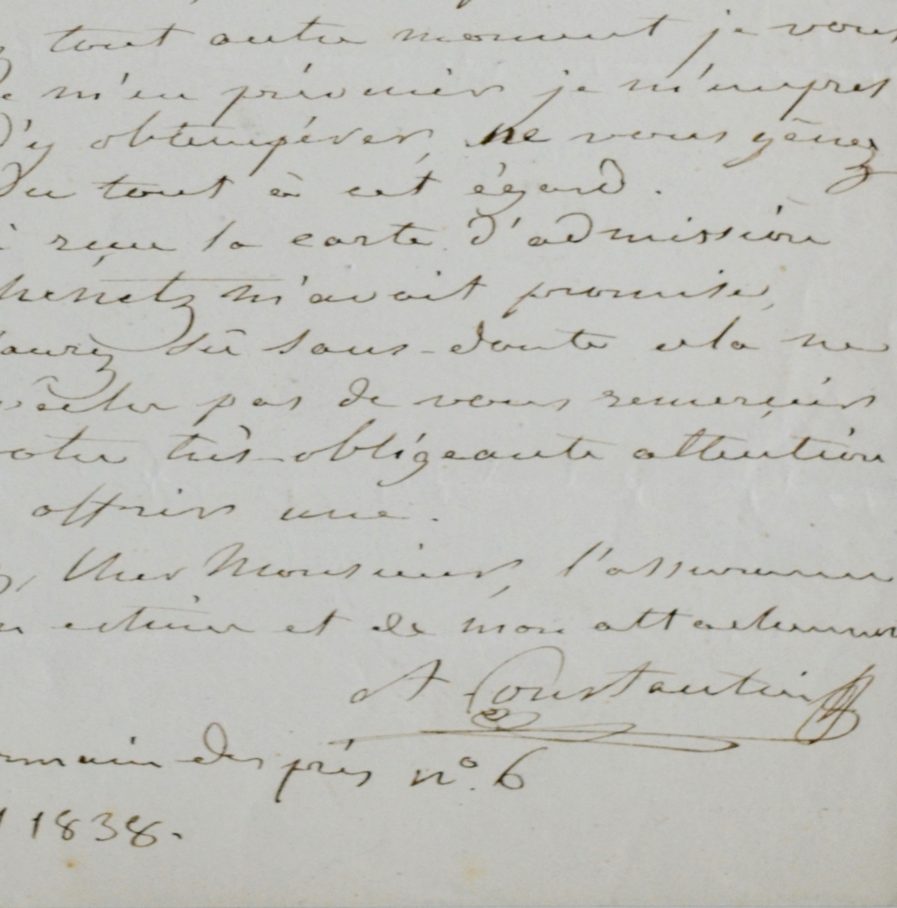 tout autre moment je vous
m'en prévenir je m'empres
d'y obtempérer, ne vous gênez
du tout à cet égard.
reçu la carte d'admission
m'avait promise,
sû sans-doute cela ne
pas de vous remerçier
votre très-obligeante attention
offrir une.
Cher Monsieur, l'assurance
estime et de mon attachement
A Constantin
ermain des près n.º 6
1838.